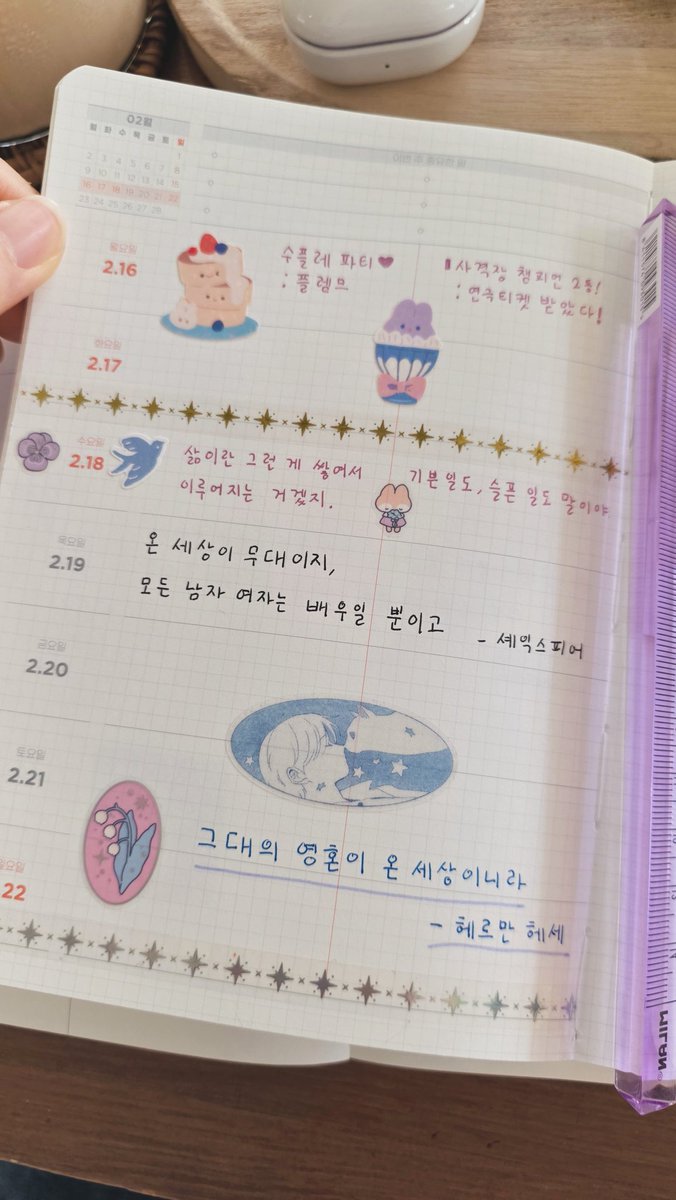 02월
월 화 수 목 금 토 일
1
2 3 4 5 6 7 8
9 10 11 12 13 14 15
16 17 18 19 20 21 22
23 24 25 26 27 28
이번 주 중요한 일
월요일
2.16
수플레 파티♥
: 플렘므
사격장 챔피언 2등!
: 연극티켓 받았다!
화요일
2.17
수요일
2.18
삶이란 그런 게 쌓여서
이루어지는 거겠지.
기쁜 일도, 슬픈 일도 말이야
목요일
2.19
온 세상이 무대이지,
모든 남자 여자는 배우일 뿐이고
- 셰익스피어
금요일
2.20
토요일
2.21
그대의 영혼이 온 세상이니라
- 헤르만 헤세
요일
22
MILAN